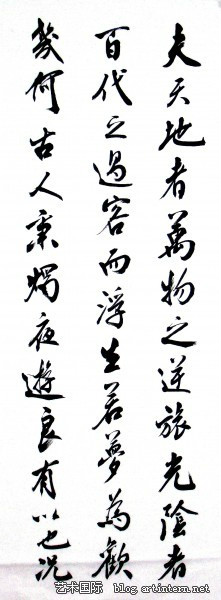 夫天地者萬物之逆旅光陰者
百代之過客而浮生若夢為歡
幾何古人秉燭夜遊良有以也況
艺术国际 blog.artintern.net